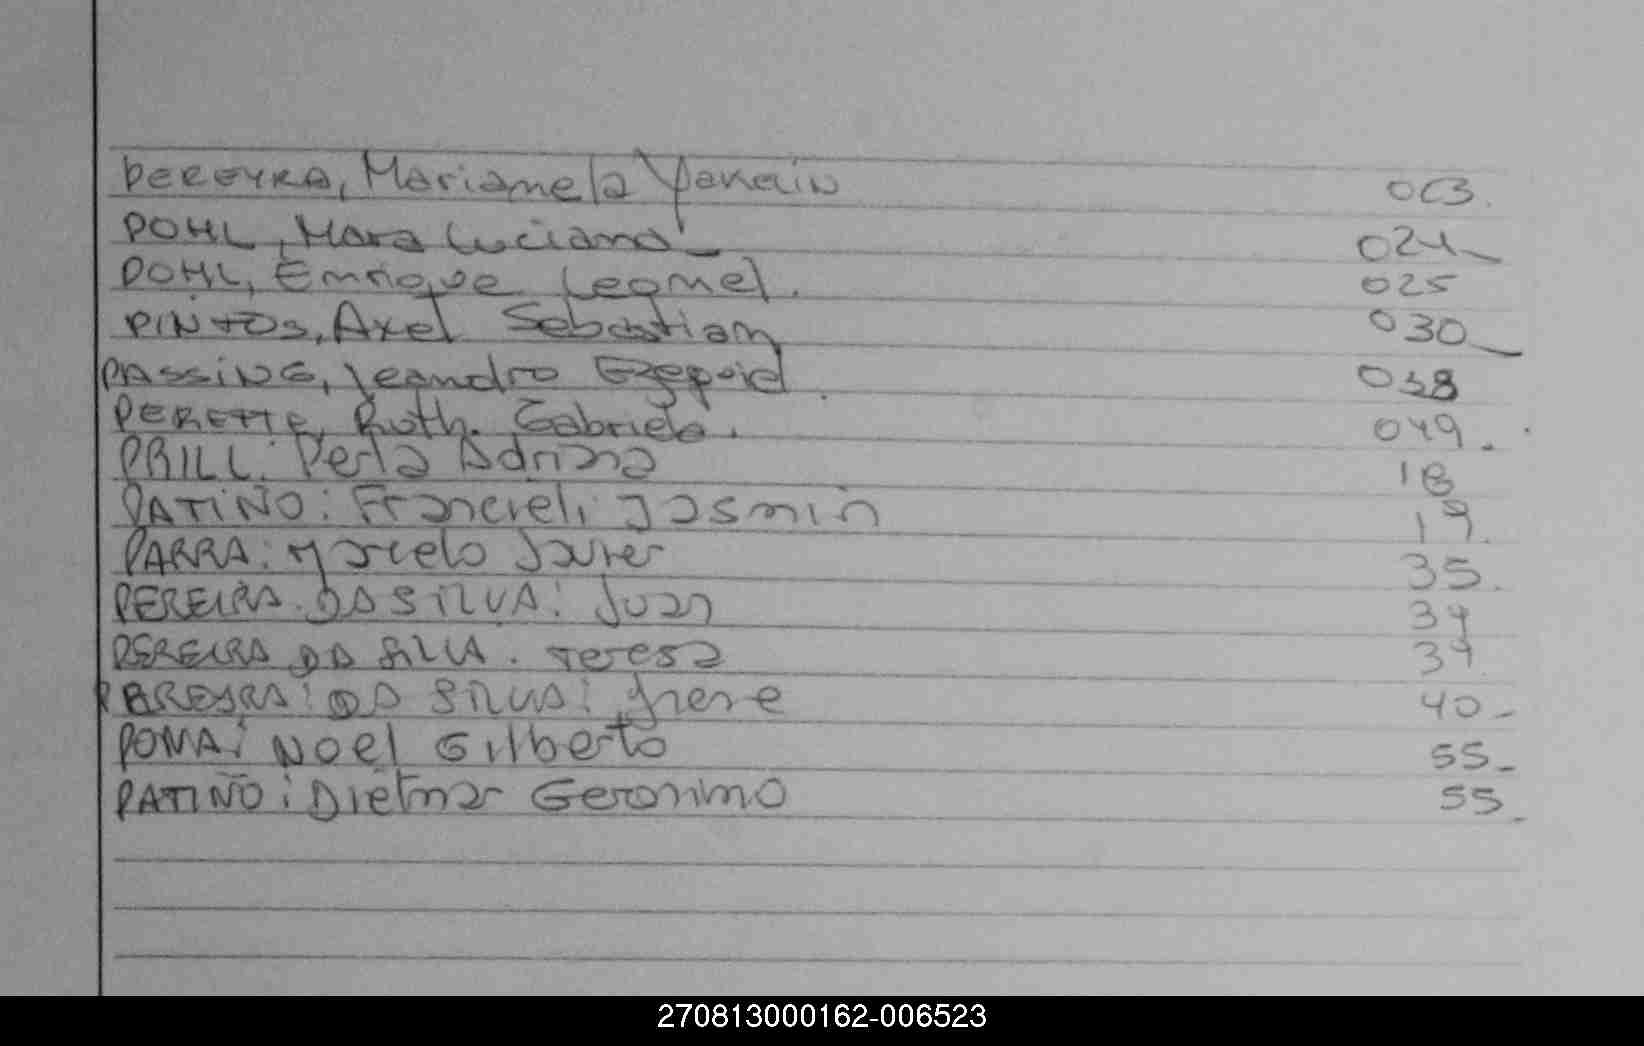 PEREYRA, Marianela Yanain 003.
POHL, Mara Luciana 024
POHL, Enrique Leonel. 025
PINTOS, Axel Sebastian 030
PASSING, Leandro Ezequiel. 038
PERETTE, Ruth. Gabriela. 049.
PRILL. Perla Adriana 18
PATIÑO: Francieli Jasmin 19.
PARRA: Marcelo Javier 35.
PEREIRA. DA SILVA: Juan 39
PEREIRA DA SILVA. Teresa 39
PEREYRA: DA SILVA: Irene 40-
POMA: Noel Gilberto 55-
PATIÑO: Dietmar Geronimo 55-
270813000162-006523